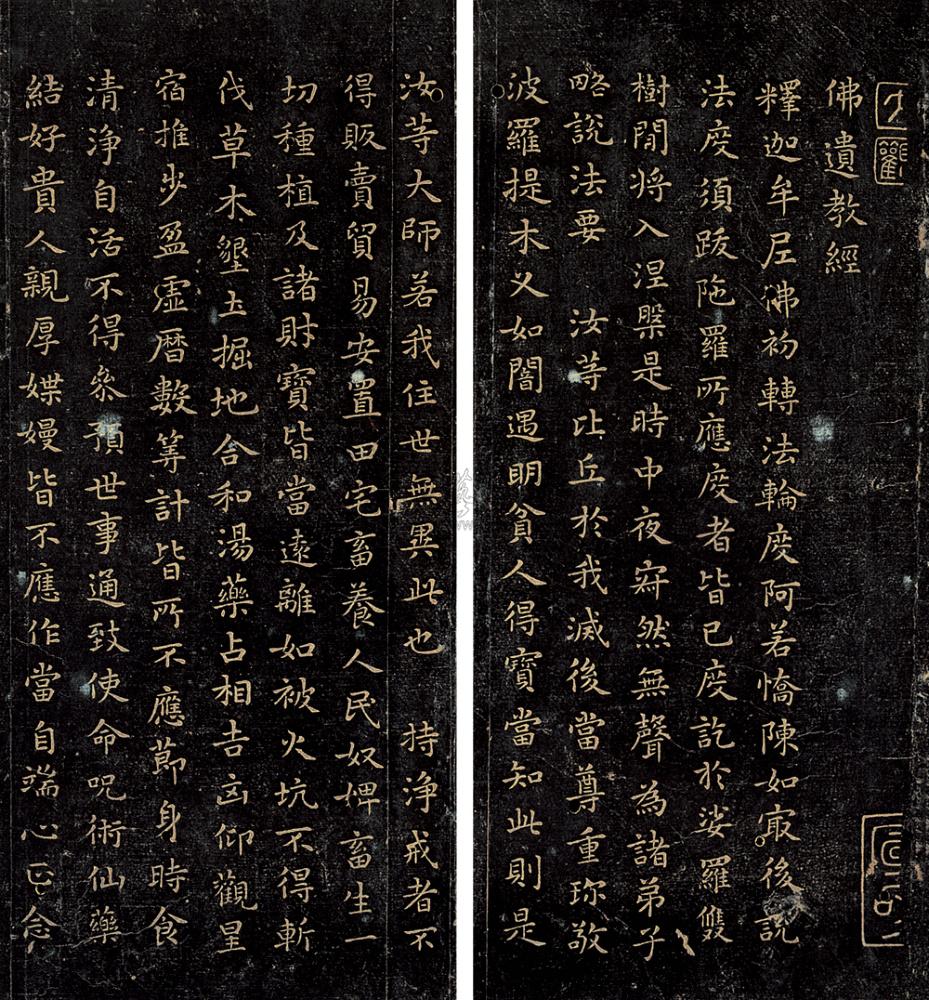 佛遺教經
釋迦牟尼佛初轉法輪度阿若憍陳如㝡後說
法度須跋陁羅所應度者皆已度訖於娑羅雙
樹間將入涅槃是時中夜寂然無聲為諸弟子
略說法要 汝等比丘於我滅後當尊重珎敬
波羅提木叉如闇遇明貧人得寶當知此則是
汝等大師若我住世無異此也 持淨戒者不
得販賣貿易安置田宅畜養人民奴婢畜生一
切種植及諸財寶皆當遠離如被火坑不得斬
伐草木墾土掘地合和湯藥占相吉凶仰觀星
宿推步盈虛曆數筭計皆所不應節身時食
清淨自活不得叅預世事通致使命呪術仙藥
結好貴人親厚媟嫚皆不應作當自端心正念